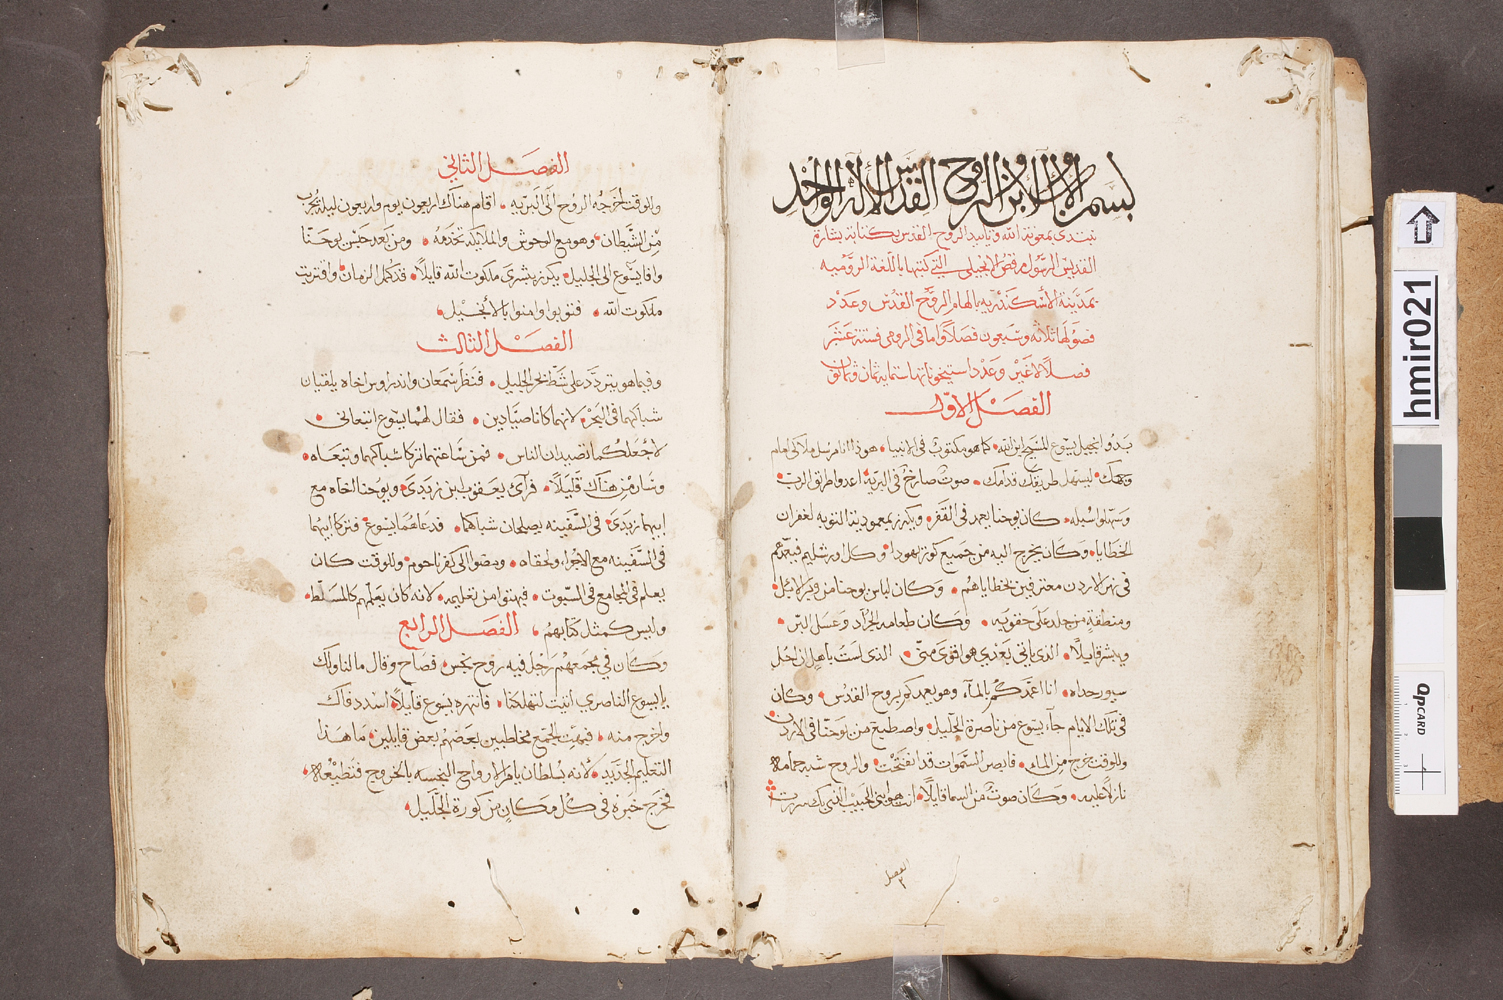 بسم الاب والابن والروح القدس الاله الواحد
نبتدى بمعونة الله وتاييد الروح القدس بكتابة بشارة
القديس الرسول مرقص الانجيلي التي كتبها باللغة الروميه
بمدينة الأسكندريه بالهام الروح القدس وعدد
فصولها ثلاثه وسبعون فصلاً واما في الرومي فستة عشر
فصلاً لاغير وعدد استيخوناتها ستمايه ثمان وثمانون
الفصل الاول
بدو انجيل يسوع المسيح ابن الله كما هو مكتوب في الانبيا هوذا انا مرسل ملاكي امام
وجهك ليسهل طريقك قدامك صوت صارخ في البرية اعدوا طريق الرب
وسهلوا سبله كان يوحنا يعمد في القفر ويكرز بمعمودية التوبه لغفران
الخطايا وكان يخرج اليه من جميع كورة يهودا وكل اورشليم فيعمدهم
في نهر الاردن معترفين بخطاياهم وكان لباس يوحنا من وبر الابل
ومنطقة من جلد على حقويه وكان طعامه الجراد وعسل البر
ويبشر قايلاً الذي ياتي بعدي هو اقوى مني الذي لست باهل ان احل
سيور حذاه انا اعمدكم بالمآء وهو يعمدكم بروح القدس وكان
في تلك الايام جآء يسوع من ناصرة الجليل واصطبغ من يوحنا في الاردن
وللوقت خرج من الماء فابصر السموات قد انفتحت والروح شبه حمامة
نازلاً عليه وكان صوت من السما قايلاً انت هو ابني الحبيب الذي بك سررت
الفصل
٢
الفصل الثاني
وللوقت اخرجه الروح الى البريه اقام هناك اربعون يوم واربعون ليلة يجرب
من الشيطان وهو مع الوحوش والملايكه تخدمه ومن بعد حبس يوحنا
وافا يسوع الى الجليل يكرز ببشرى ملكوت الله قايلاً قد كمل الزمان واقتربت
ملكوت الله فتوبوا وامنوا بالأنجيل
الفصل الثالث
وفيما هو يتردد على شط بحر الجليل فنظر سمعان واندراوس اخاه يلقيان
شباكهما في البحر لانهما كانا صيادين فقال لهما يسوع اتبعاني
لاجعلكما تصيدان الناس فمن ساعتهما تركا شباكهما وتبعاه
وسار من هناك قليلاً فرآى يعقوب ابن زبدي ويوحنا اخاه مع
ابيهما زبدى في السفينه يصلحان شباكهما فدعاهما يسوع فتركا ابيهما
في السفينه مع الاجرا ولحقاه ومضوا الى كفرناحوم وللوقت كان
يعلم في المجامع في السبوت فبهتوا من تعليمه لانه كان يعلمهم كالمسلط
وليس كمثل كتابهم الفصل الرابع
وكان في مجمعهم رجل فيه روح نجس فصاح وقال ما لنا ولك
يا يسوع الناصري اتيت لتهلكنا فانتهره يسوع قايلاً اسدد فاك
واخرج منه فبهت الجمع مخاطبين بعضهم بعض قايلين ما هذا
التعليم الجديد لانه بسلطان يامر الارواح النجسه بالخروج فتطيعه
فخرج خبره في كل مكان من كورة الجليل
hmir021
QPCARD